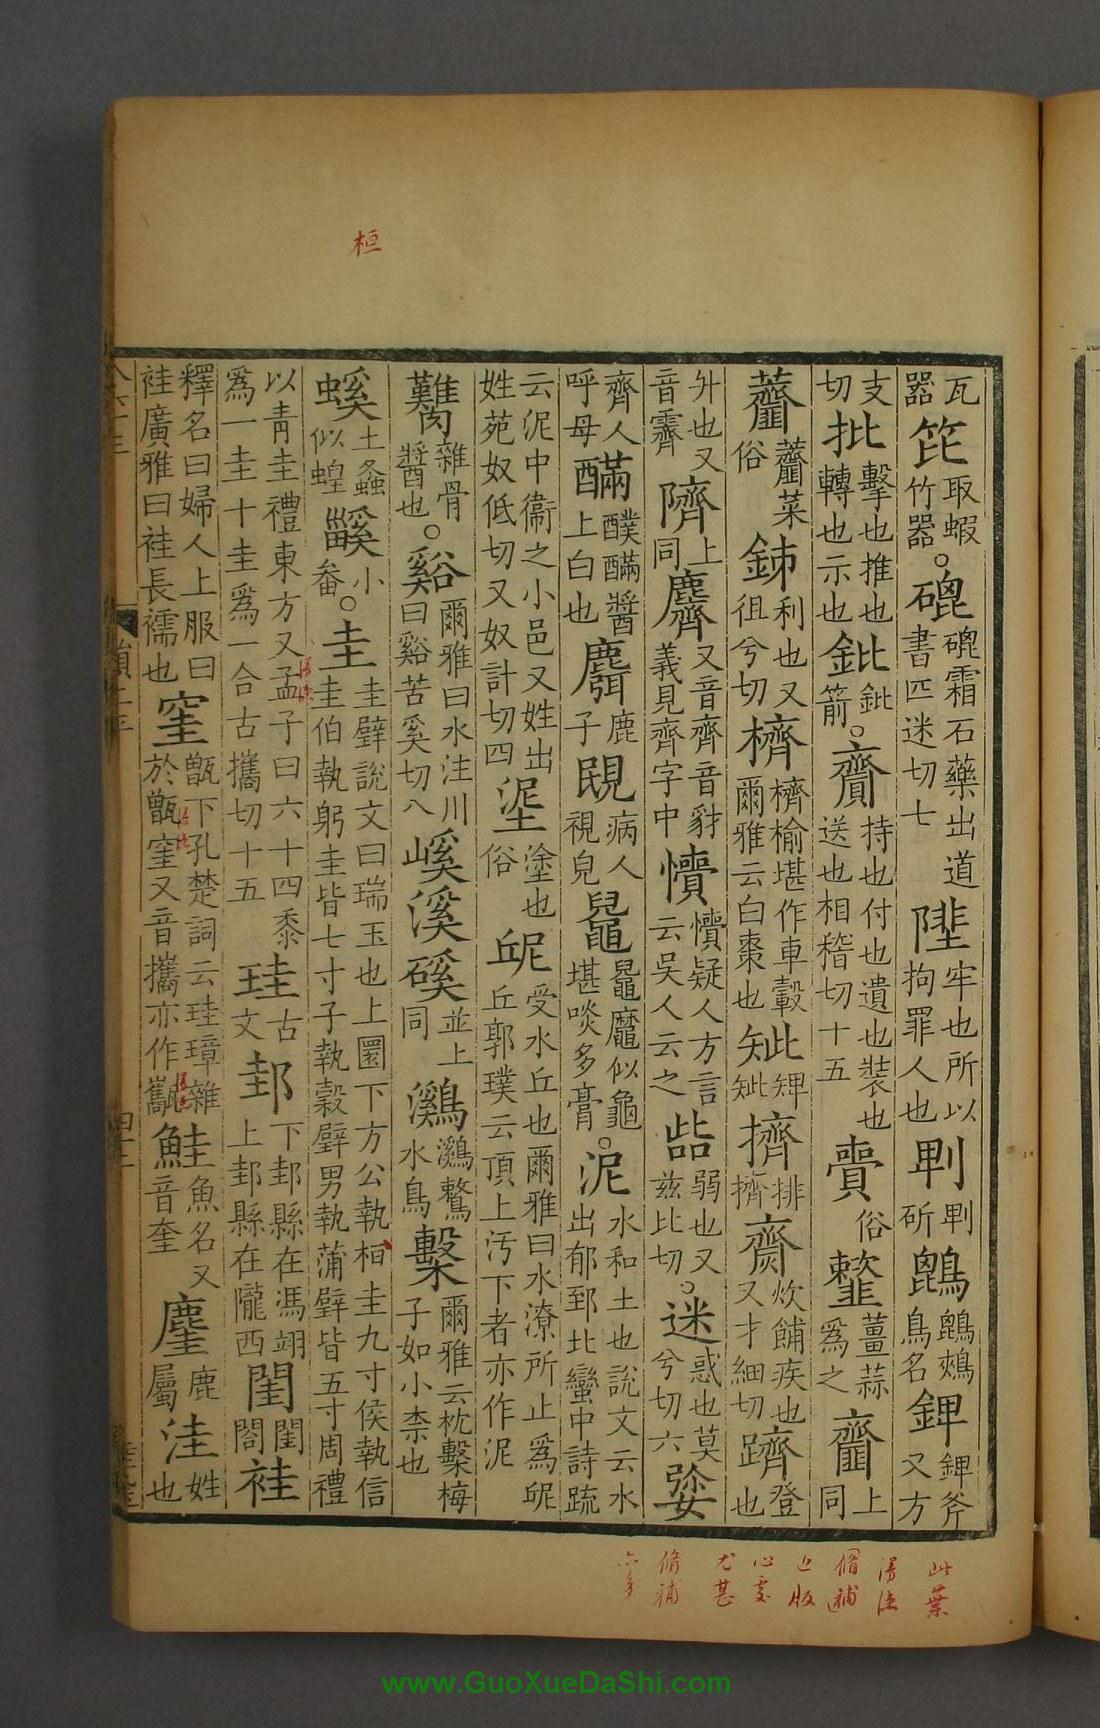 桓
瓦器笓取蝦竹器○磇磇霜石藥出道書匹迷切七陛牢也所以拘罪人也𠜱𠜱斫鵖鵖鴩鳥名錍錍斧又方
支切批擊也推也轉也示也鈚鈚箭○齎持也付也遺也裝也送也相稽切十五賷俗韲薑蒜爲之齏上同
虀虀菜俗𨥨利也又徂兮切櫅櫅榆堪作車轂爾雅云白棗也𪗉䂣𪗉擠排擠齌炊餔疾也又才細切躋登也
升也又音霽隮上同麡又音齊音豺義見齊字中懠懠疑人方言云吳人云之啙弱也又兹比切○迷惑也莫兮切六㜷
齊人呼母䤍醭䤍醬上白也麛鹿子䁇病人視皃鼊鼊𪓟似龜堪啖多膏○泥水和土也說文云水出郁郅北蠻中詩疏
云泥中衞之小邑又姓出姓苑奴低切又奴計切四埿塗也俗坭受水丘也爾雅曰水潦所止爲坭丘郭璞云頂上汚下者亦作泥
臡雜骨醬也○谿爾雅曰水注川曰谿苦奚切八嵠溪磎並上同鸂鸂鶒水鳥䜁爾雅云杬䜁梅子如小柰也
螇土螽似蝗㽯小畚○圭圭璧說文曰瑞玉也上圜下方公執桓圭九寸侯執信圭伯執躬圭皆七寸子執穀璧男執蒲璧皆五寸周禮
以靑圭禮東方又孟子曰六十四黍爲一圭十圭爲一合古攜切十五珪古文邽下邽縣在馮翊上邽縣在隴西閨閨閤袿
釋名曰婦人上服曰袿廣雅曰袿長襦也窐甑下孔楚詞云珪璋雜於甑窐又音攜亦作𪚰鮭魚名又音奎䴢鹿屬洼姓也
此葉
漫漶
修補
之版
心處
尤甚
脩補
亦多
www.GuoXueDaShi.com